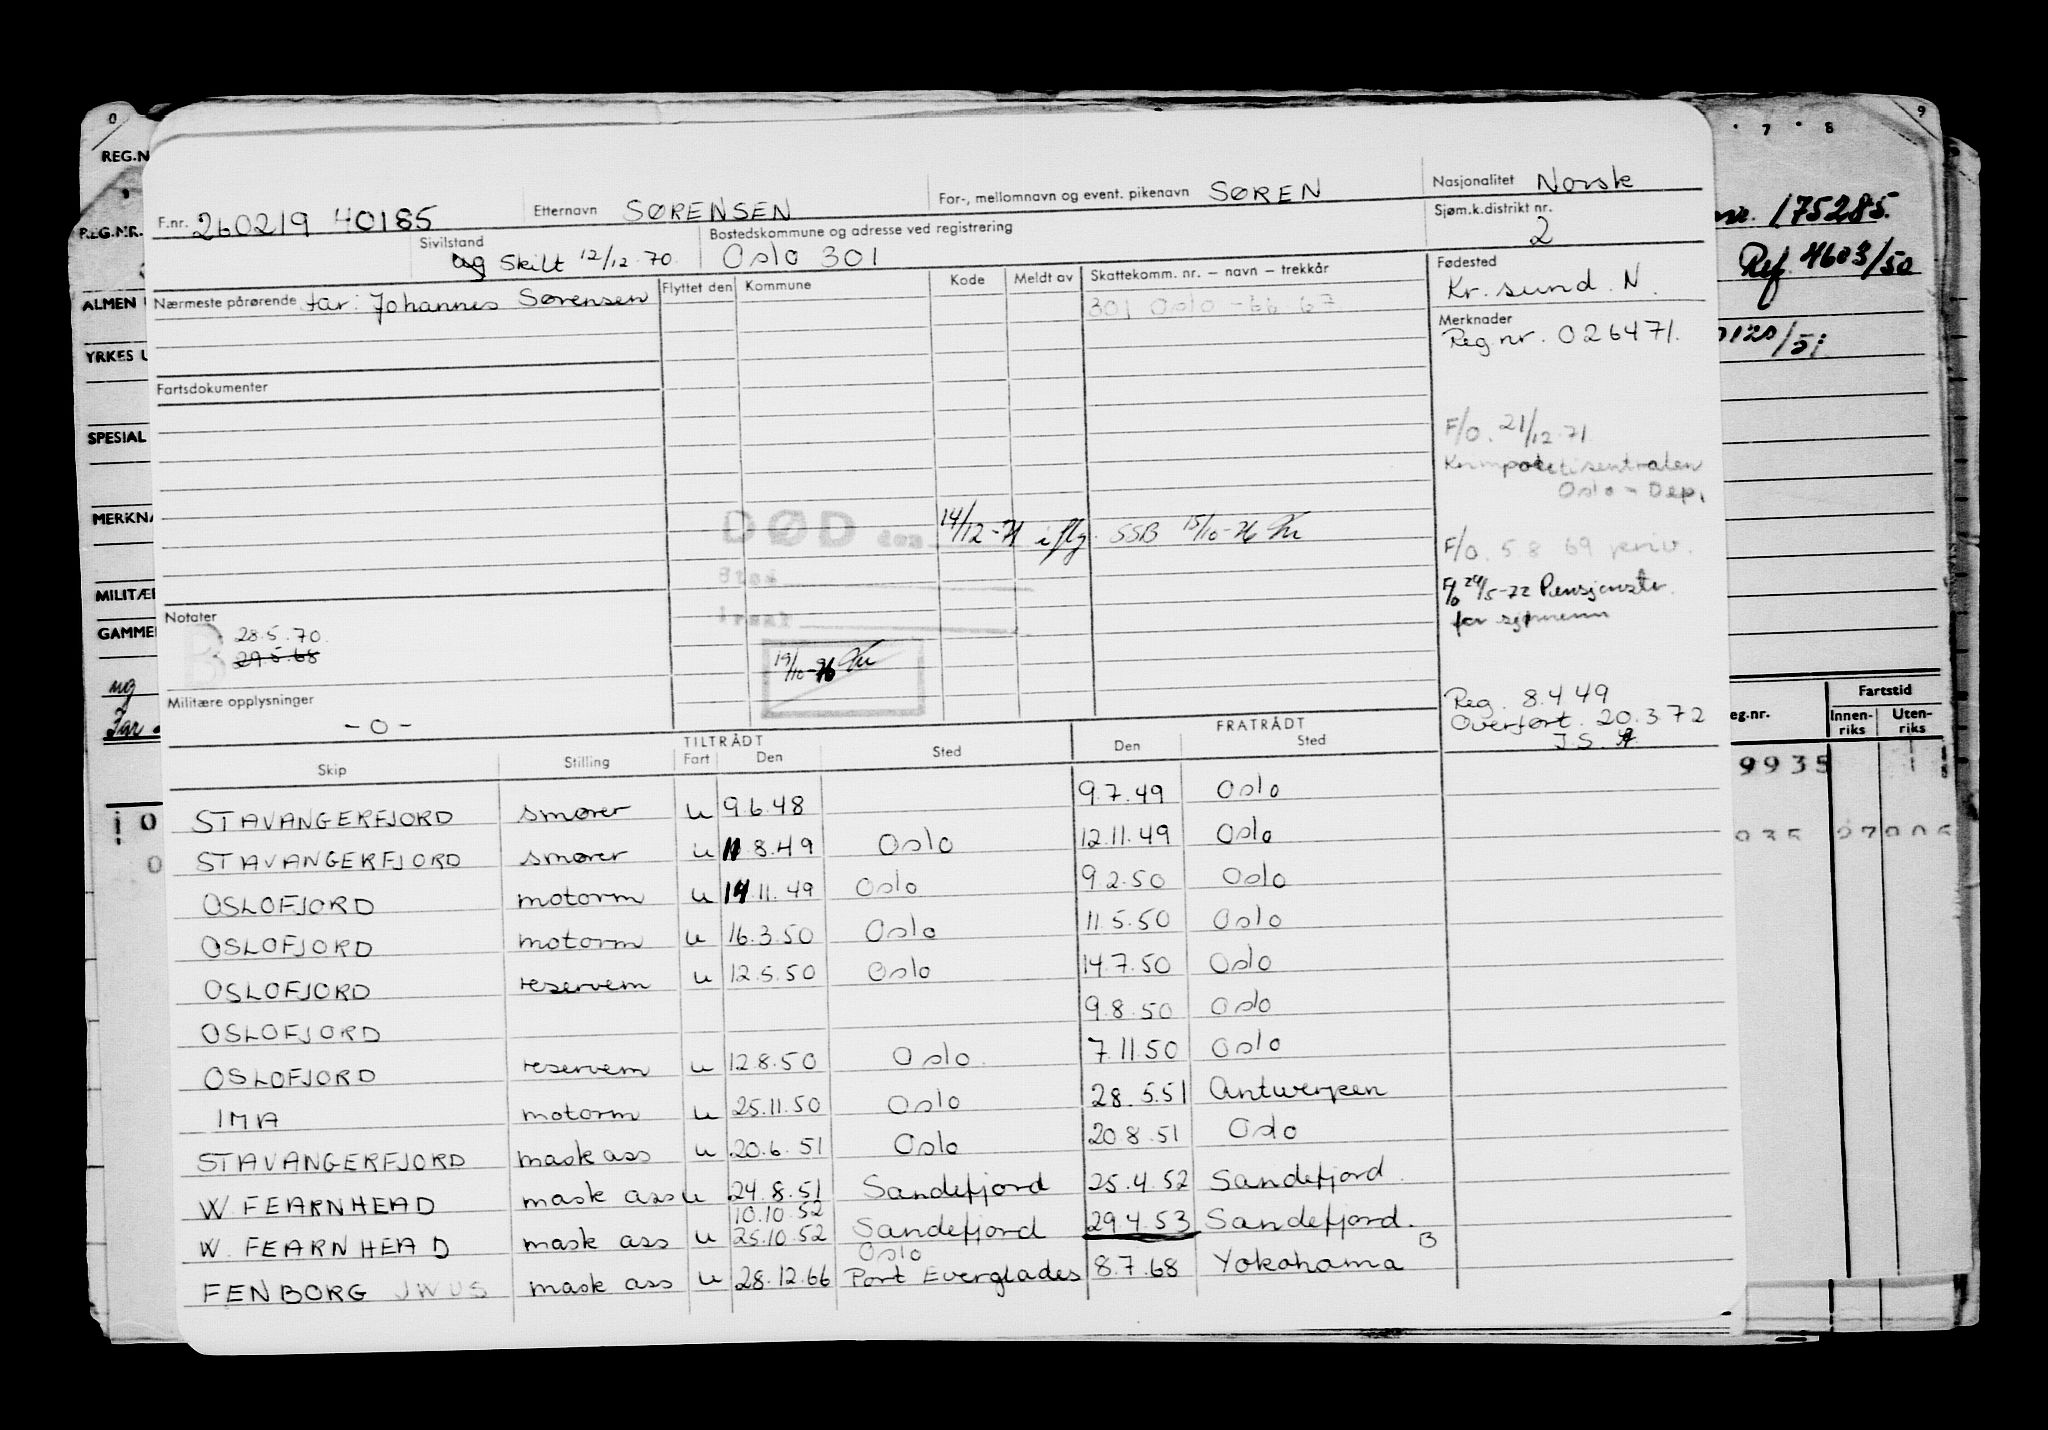 F.nr. 260219 40185 Etternavn SØRENSEN For-, mellomnavn og event. pikenavn SØREN Nasjonalitet Norsk
Sivilstand ug Skilt 12/12.70. Bostedskommune og adresse ved registrering Oslo 301 Sjøm.k.distrikt nr. 2
Nærmeste pårørende far: Johannes Sørensen Flyttet den Kommune Kode Meldt av Skattekomm. nr. – navn – trekkår Fødested Kr. sund. N.
301 Oslo - 66 67
Merknader
Reg nr. 026471.
Fartsdokumenter
F/O. 21/12.71
Krimpolitisentralen
Oslo - Dep.
DØD den 14/12-71 iflg. SSB 15/10-76
F/O. 5 8 69 priv.
Sted
F/O 24/5-72 Pensjonstr.
for sjømenn
Notater
B
28.5.70.
29.5.68
19/10-76
Militære opplysninger
- 0 -
Reg. 8.4 49
Overført. 20.3 72
J.S.
TILTRÅDT FRATRÅDT
Skip Stilling Fart Den Sted Den Sted
STAVANGERFJORD smører u 9.6.48 9.7.49 Oslo
STAVANGERFJORD smører u 11 8.49 Oslo 12.11.49 Oslo
OSLOFJORD motorm u 14.11.49 Oslo 9.2.50 Oslo
OSLOFJORD motorm u 16.3.50 Oslo 11.5.50 Oslo
OSLOFJORD reservem u 12.5.50 Oslo 14.7.50 Oslo
OSLOFJORD 9.8.50 Oslo
OSLOFJORD reservem u 12.8.50 Oslo. 7.11.50 Oslo
IMA motorm u 25.11.50 Oslo 28.5.51 Antwerpen
STAVANGERFJORD mask ass u 20.6.51 Oslo 20.8.51 Oslo
W. FEARNHEAD mask ass u 24.8.51 Sandefjord 25.4.52 Sandefjord.
10.10.52
W. FEARNHEAD mask ass u 25.10.52 Sandefjord 29.4.53 Sandefjord.
Oslo B
FENBORG JWUS mask ass u 28.12.66 Port Everglades 8.7.68 Yokohama
0
REG.N
REG.NR.
ALMEN
YRKES U
SPESIAL
MERKNA
MILITÆR
GAMME
ug
Far
7 8 9
nr. 175285.
Ref. 4603/50
0120/51
eg.nr. Fartstid
Innen-riks Uten-riks
9935
035 07006